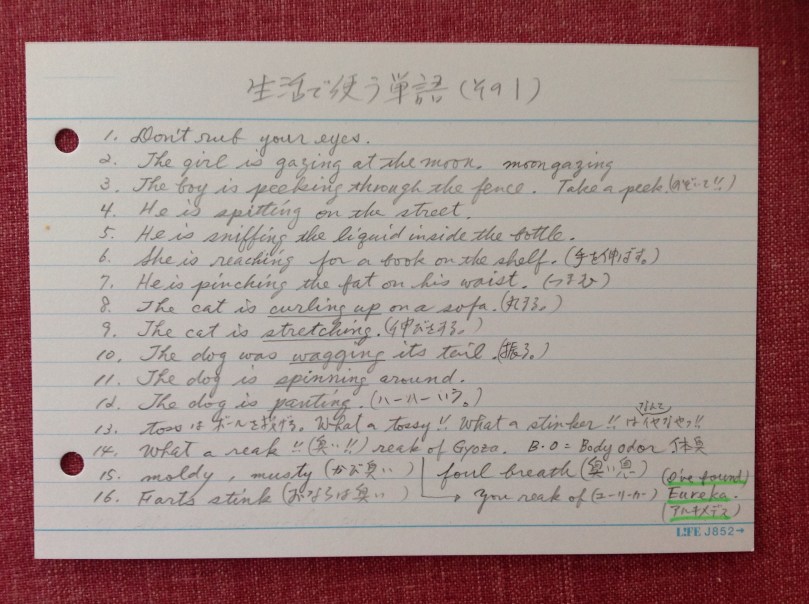 生活で使う単語(その1)
1. Don't rub your eyes.
2. The girl is gazing at the moon. moongazing
3. The boy is peeking through the fence. Take a peek.(のぞいて!!)
4. He is spitting on the street.
5. He is sniffing the liquid inside the bottle.
6. She is reaching for a book on the shelf. (手を伸ばす。)
7. He is pinching the fat on his waist. (つまむ)
8. The cat is curling up on a sofa. (丸まる。)
9. The cat is stretching. (伸びをする。)
10. The dog was wagging its tail. (振る。)
11. The dog is spinning around.
12. The dog is panting. (ハーハーいう。)
13. toss はボールを投げる。 What a tossy!! What a stinker!! はイヤなやつ!!
なんて
14. What a reak!! (臭い!!) reak of Gyoza. B.O = Body odor 体臭
15. moldy, musty (かび臭い) foul breath (臭い息)
16. Farts stink (おならは臭い) you reak of (ユーリーカー) Eureka.
(I've found)
(アルキメデス)
LIFE J852→